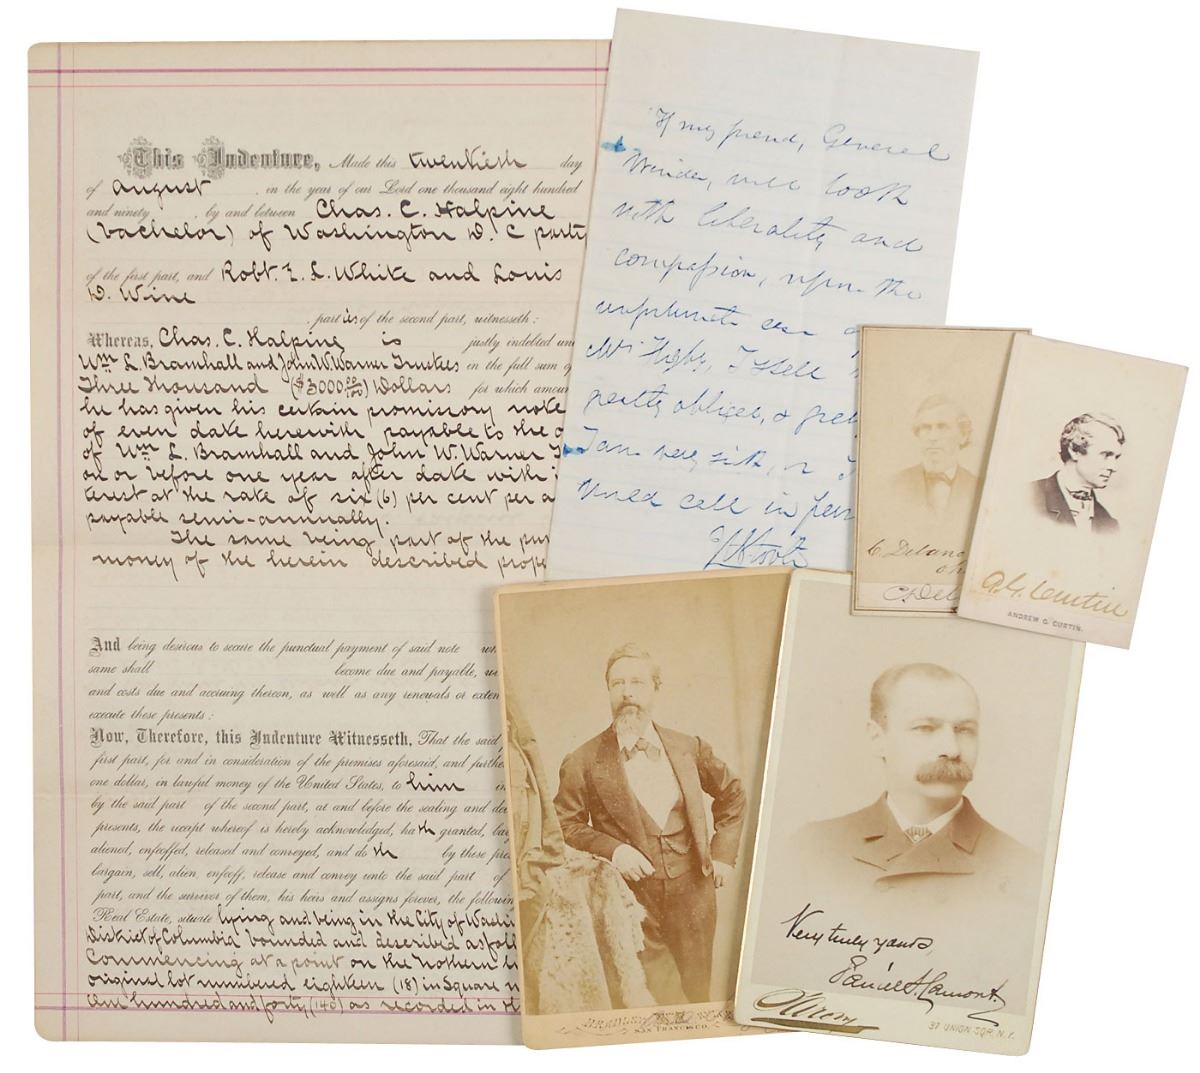 This Indenture, Made this twentieth day
of august in the year of our Lord one thousand eight hundred
and ninety, by and between Chas. C. Halpine
(bachelor) of Washington D. C party
of the first part, and Robt. E. L. White and Louis
D. Wine
parties of the second part, witnesseth:
Whereas, Chas. C. Halpine is justly indebted un
Wm L. Bramhall and John W. Warner Trustees in the full sum of
Three Thousand ($3000.00/100) Dollars for which amoun
he has given his certain promissory note
of even date herewith payable to the o
of Wm L. Bramhall and John W. Warner T
on or before one year after date with i
terest at the rate of six (6) per cent per a
payable semi-annually.
The same being part of the pur
money of the herein described prope
And being desirous to secure the punctual payment of said note
same shall become due and payable, wi
and costs due and accruing thereon, as well as any renewals or exten
execute these presents:
Now, Therefore, this Indenture Witnesseth, That the said
first part, for and in consideration of the premises aforesaid, and furthe
one dollar, in lawful money of the United States, to him in
by the said part of the second part, at and before the sealing and de
presents, the receipt whereof is hereby acknowledged, hath granted, bar
aliened, enfeoffed, released and conveyed, and doth by these pre
bargain, sell, alien, enfeoff, release and convey unto the said part of
part, and the survivor of them, his heirs and assigns forever, the followin
Real Estate, situate lying and being in the City of Washi
District of Columbia bounded and described as foll
Commencing at a point on the Northern li
original lot numbered eighteen (18) in Square n
one hundred and forty, (140) as recorded in th
If my friend, General
Winder, will look
with liberality and
compassion, upon the
unfortunate case
Mr Higby, I shall
greatly obliged, &
I am very sick, or I
would call in per
H S Foote
C. Delano
Ohio
C. Del
A. G. Curtin
ANDREW G. CURTIN.
SAN FRANCISCO.
Very truly yours,
Daniel S. Lamont.
37 UNION SQR, N.Y.